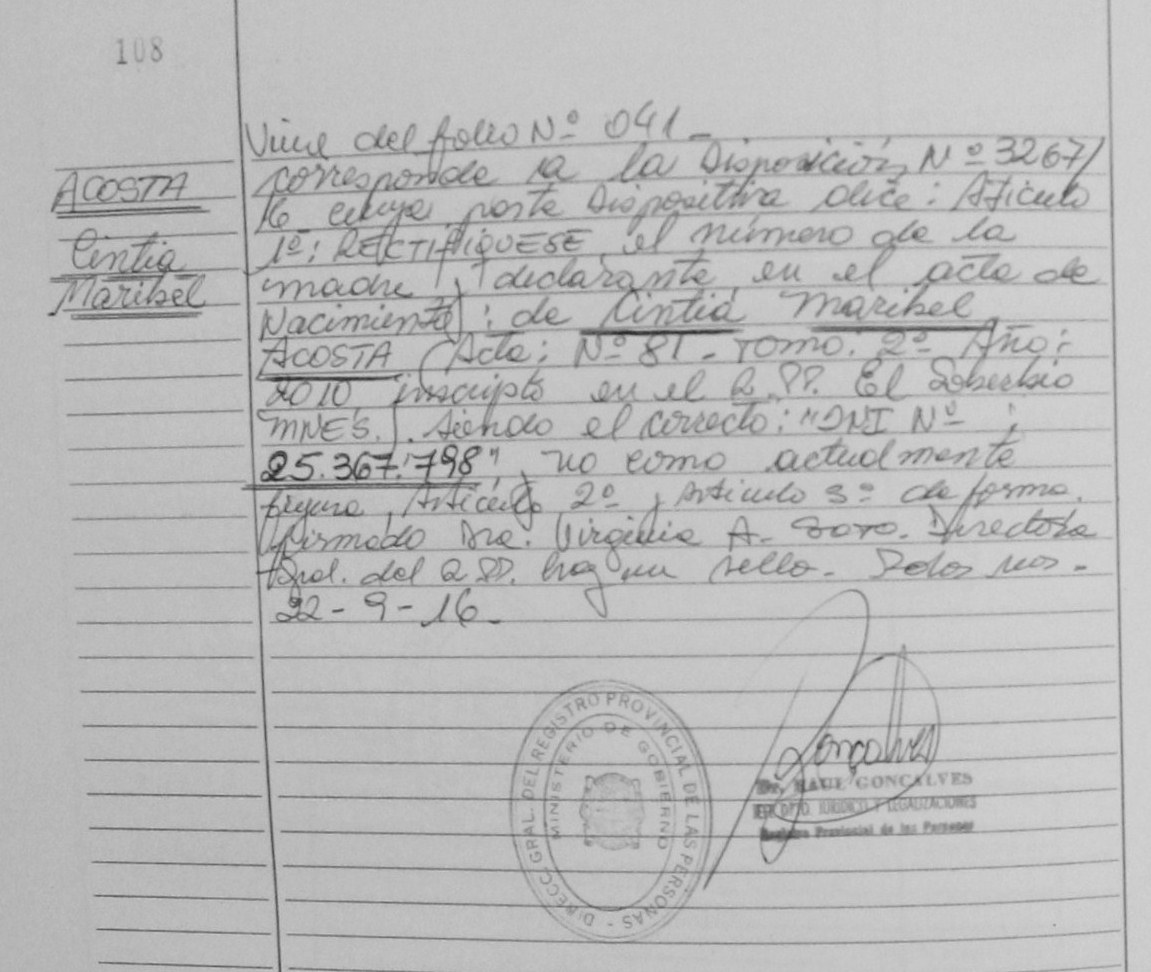 108
ACOSTA
Cintia
Maribel
Viene del folio Nº 041_
corresponde a la Disposición Nº 3267/
16 cuya parte Dispositiva dice: Articulo
1º: RECTIFIQUESE el número de la
madre y declarante en el acta de
Nacimiento: de Cintia Maribel
ACOSTA (Acta: Nº 81_ Tomo: 2º Año:
2010 inscripta en el R.PP. El Soberbio
MNES.). siendo el correcto: "DNI Nº
25.367.798", no como actualmente
figura, Articulo 2º, Articulo 3º de forma.
firmado Dra. Virginia A. Directora
del R.PP. hay un sello_
22-9-16_
DIRECC. GRAL. DEL REGISTRO PROVINCIAL DE LAS PERSONAS -
MINISTERIO DE GOBIERNO
Gonçalves
Dr. RAUL GONCALVES
DPTO. JURIDICO Y LEGALIZACIONES
Registro Provincial de las Personas